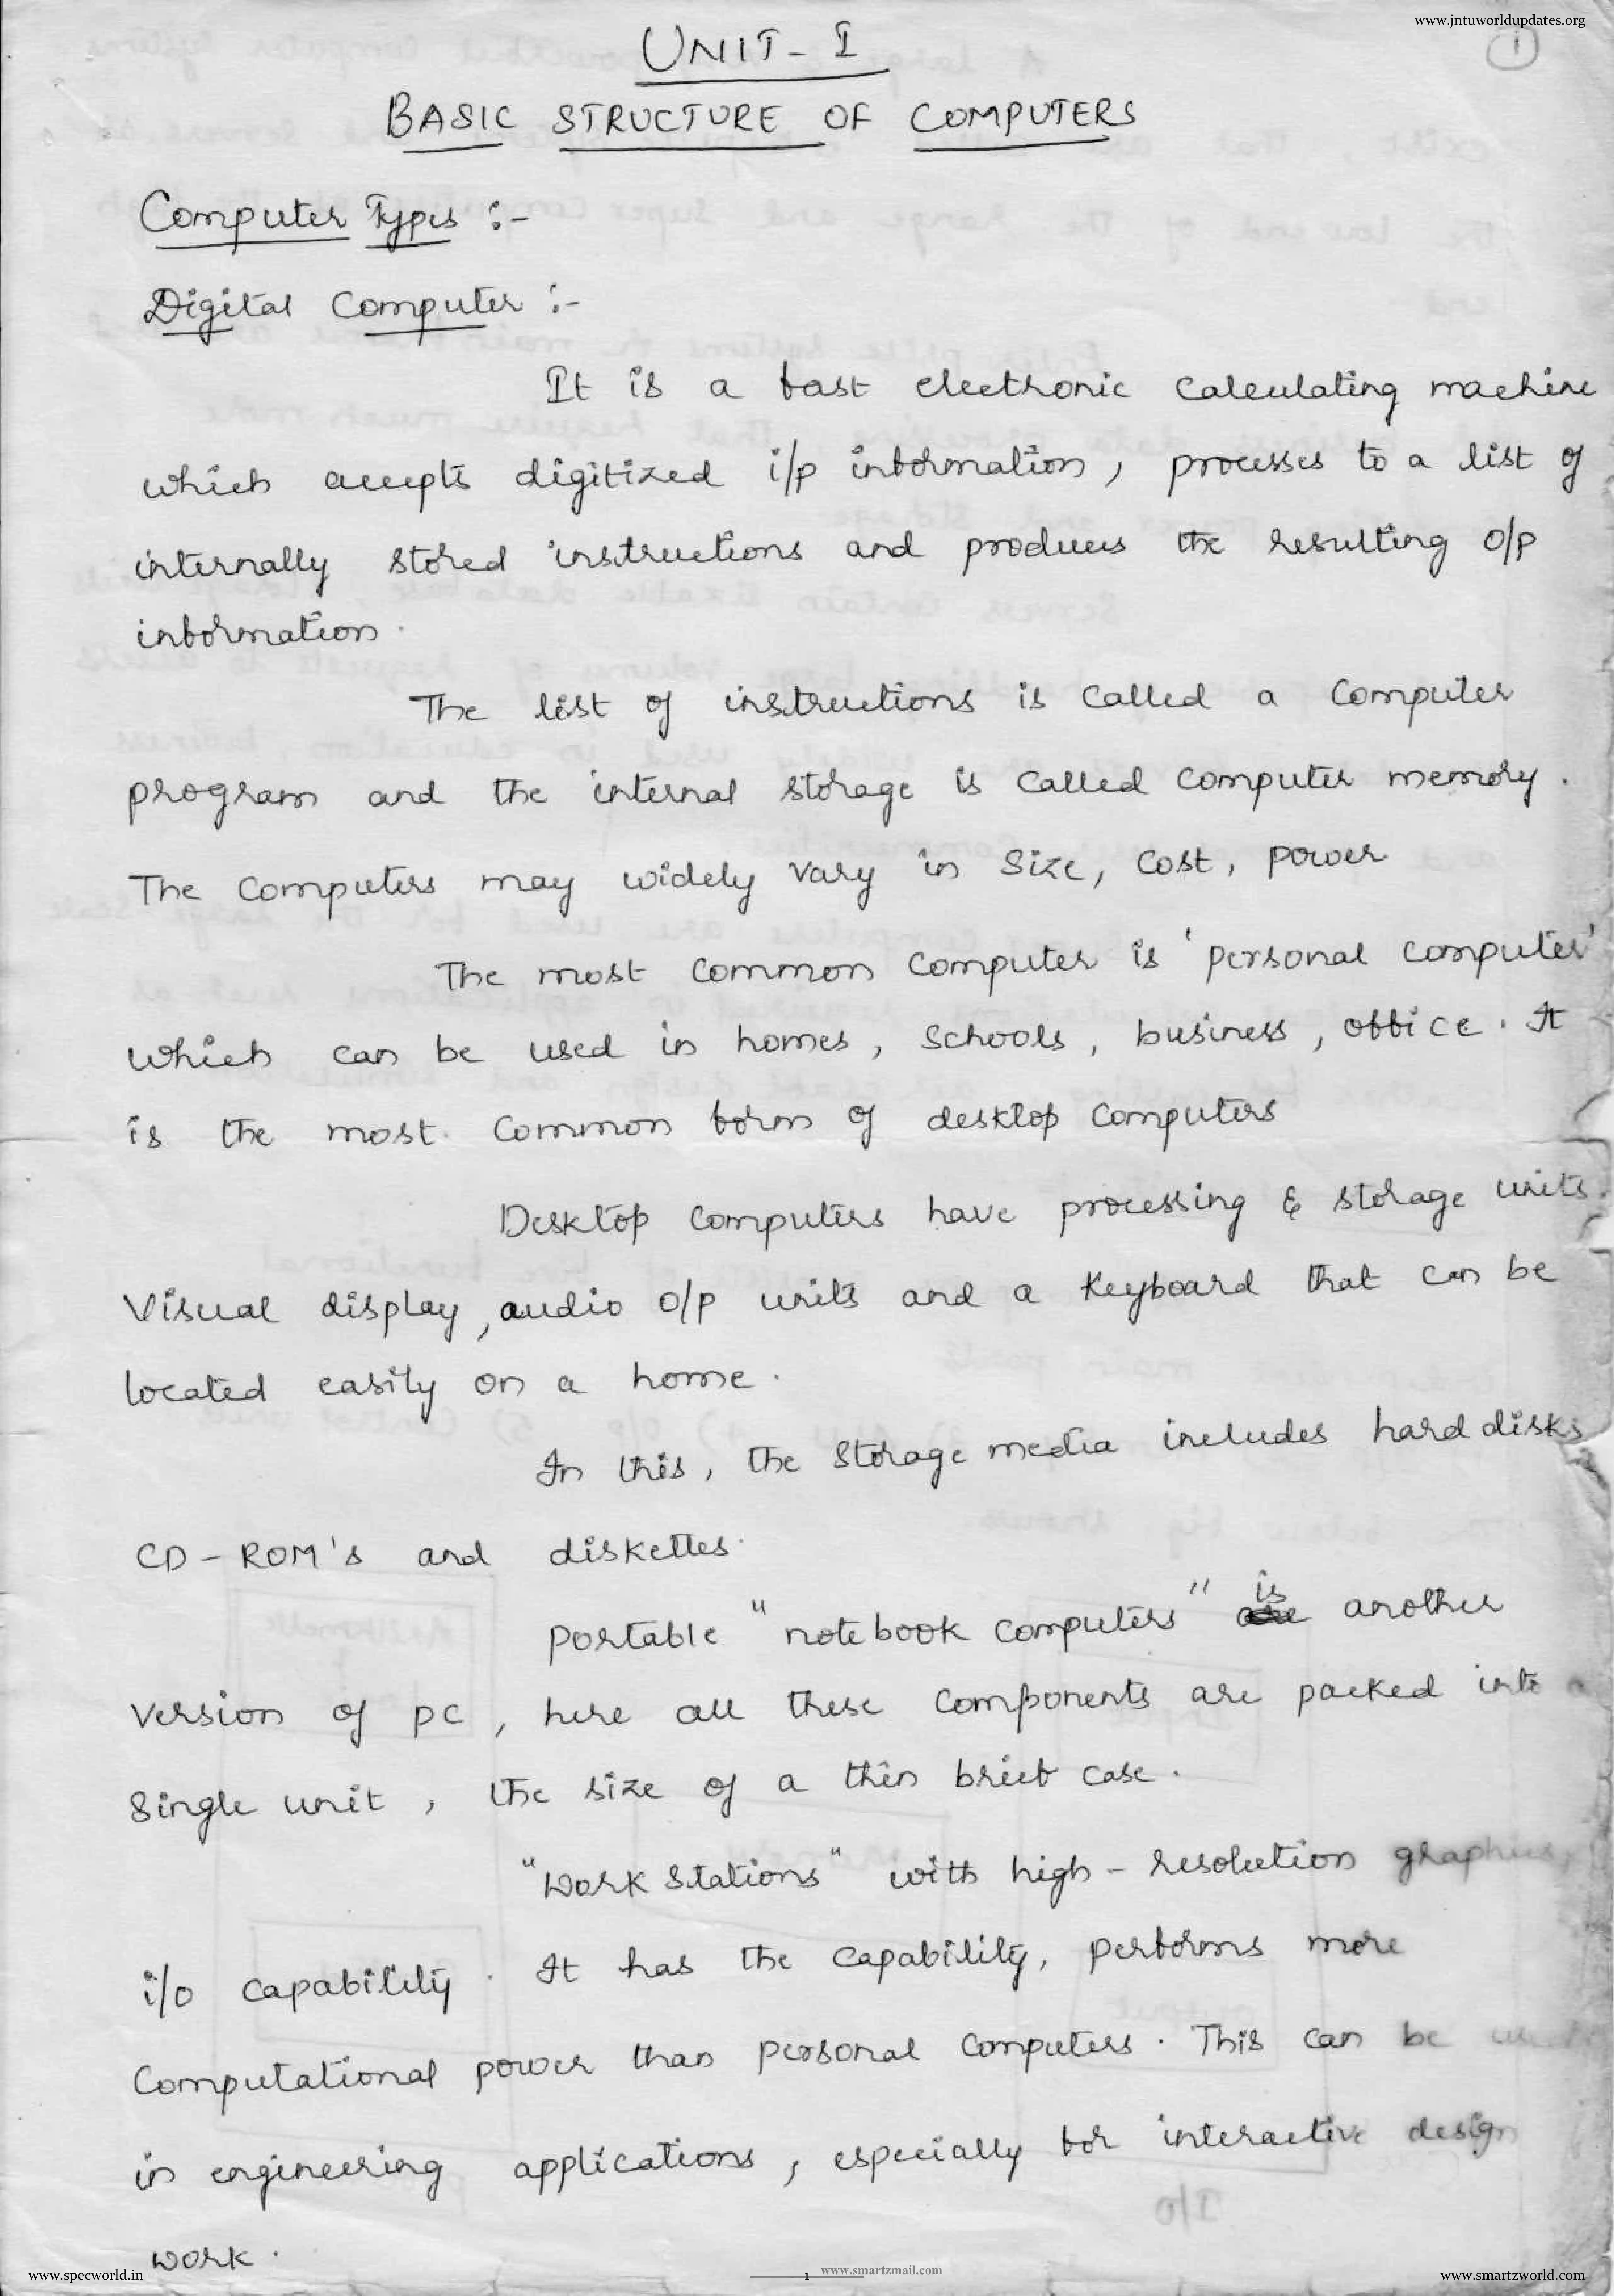 www.jntuworldupdates.org
1
UNIT - I
BASIC STRUCTURE OF COMPUTERS
Computer Types :-
Digital Computer :-
It is a fast electronic calculating machine
which accepts digitized i/p information, processes to a list of
internally stored instructions and produces the resulting o/p
information.
The list of instructions is called a computer
program and the internal storage is called computer memory.
The computers may widely vary in size, cost, power
The most common computer is 'personal computer'
which can be used in homes, schools, business, office. It
is the most common form of desktop computers
Desktop computers have processing & storage units.
Visual display, audio o/p units and a keyboard that can be
located easily on a home.
In this, the storage media includes hard disks
CD-ROM's and diskettes.
portable "notebook computers" is another
version of pc, here all these components are packed into a
single unit, the size of a thin brief case.
"Work stations" with high-resolution graphics,
i/o capability. It has the capability, performs more
computational power than personal computers. This can be
in engineering applications, especially for interactive design
work.
www.specworld.in
1
www.smartzmail.com
www.smartzworld.com